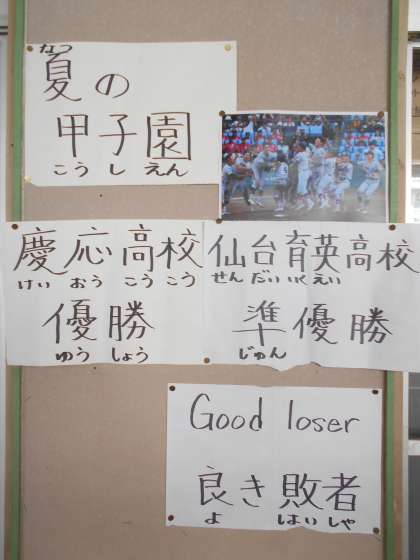 なつ
夏の
甲子園
こうしえん
慶応高校
けいおうこうこう
優勝
ゆうしょう
仙台育英高校
せんだいいくえい
準優勝
じゅん
Good loser
良き敗者
よ はいしゃ